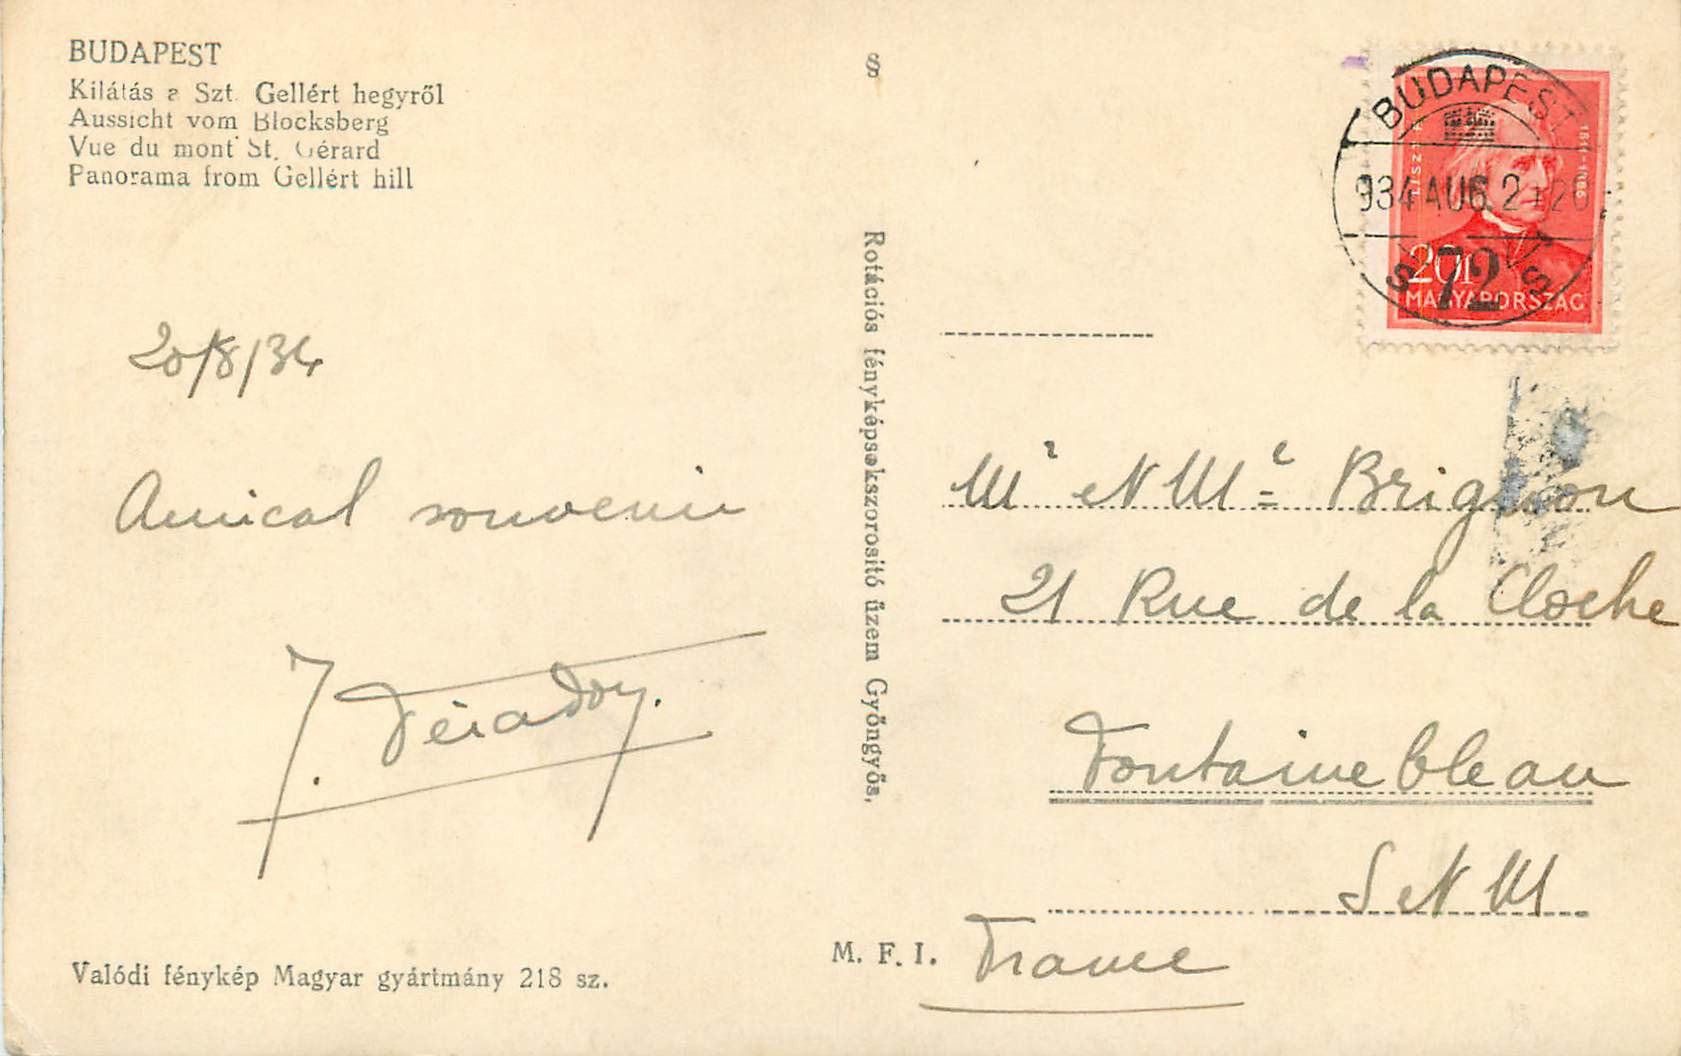 BUDAPEST
Kilátás a Szt. Gellért hegyről
Aussicht vom Blocksberg
Vue du mont St. Gérard
Panorama from Gellért hill
20/8/34
Amical souvenir
J.
Valódi fénykép Magyar gyártmány 218 sz.
§
Rotációs fényképsokszorositó üzem Gyöngyös.
M. F. I.
BUDAPEST
934 AUG. 2
72
LISZT F.
1811-1886
20f
MAGYARORSZÁG
Mr et Me Brignon
21 Rue de la Cloche
Fontainebleau
S et M
France